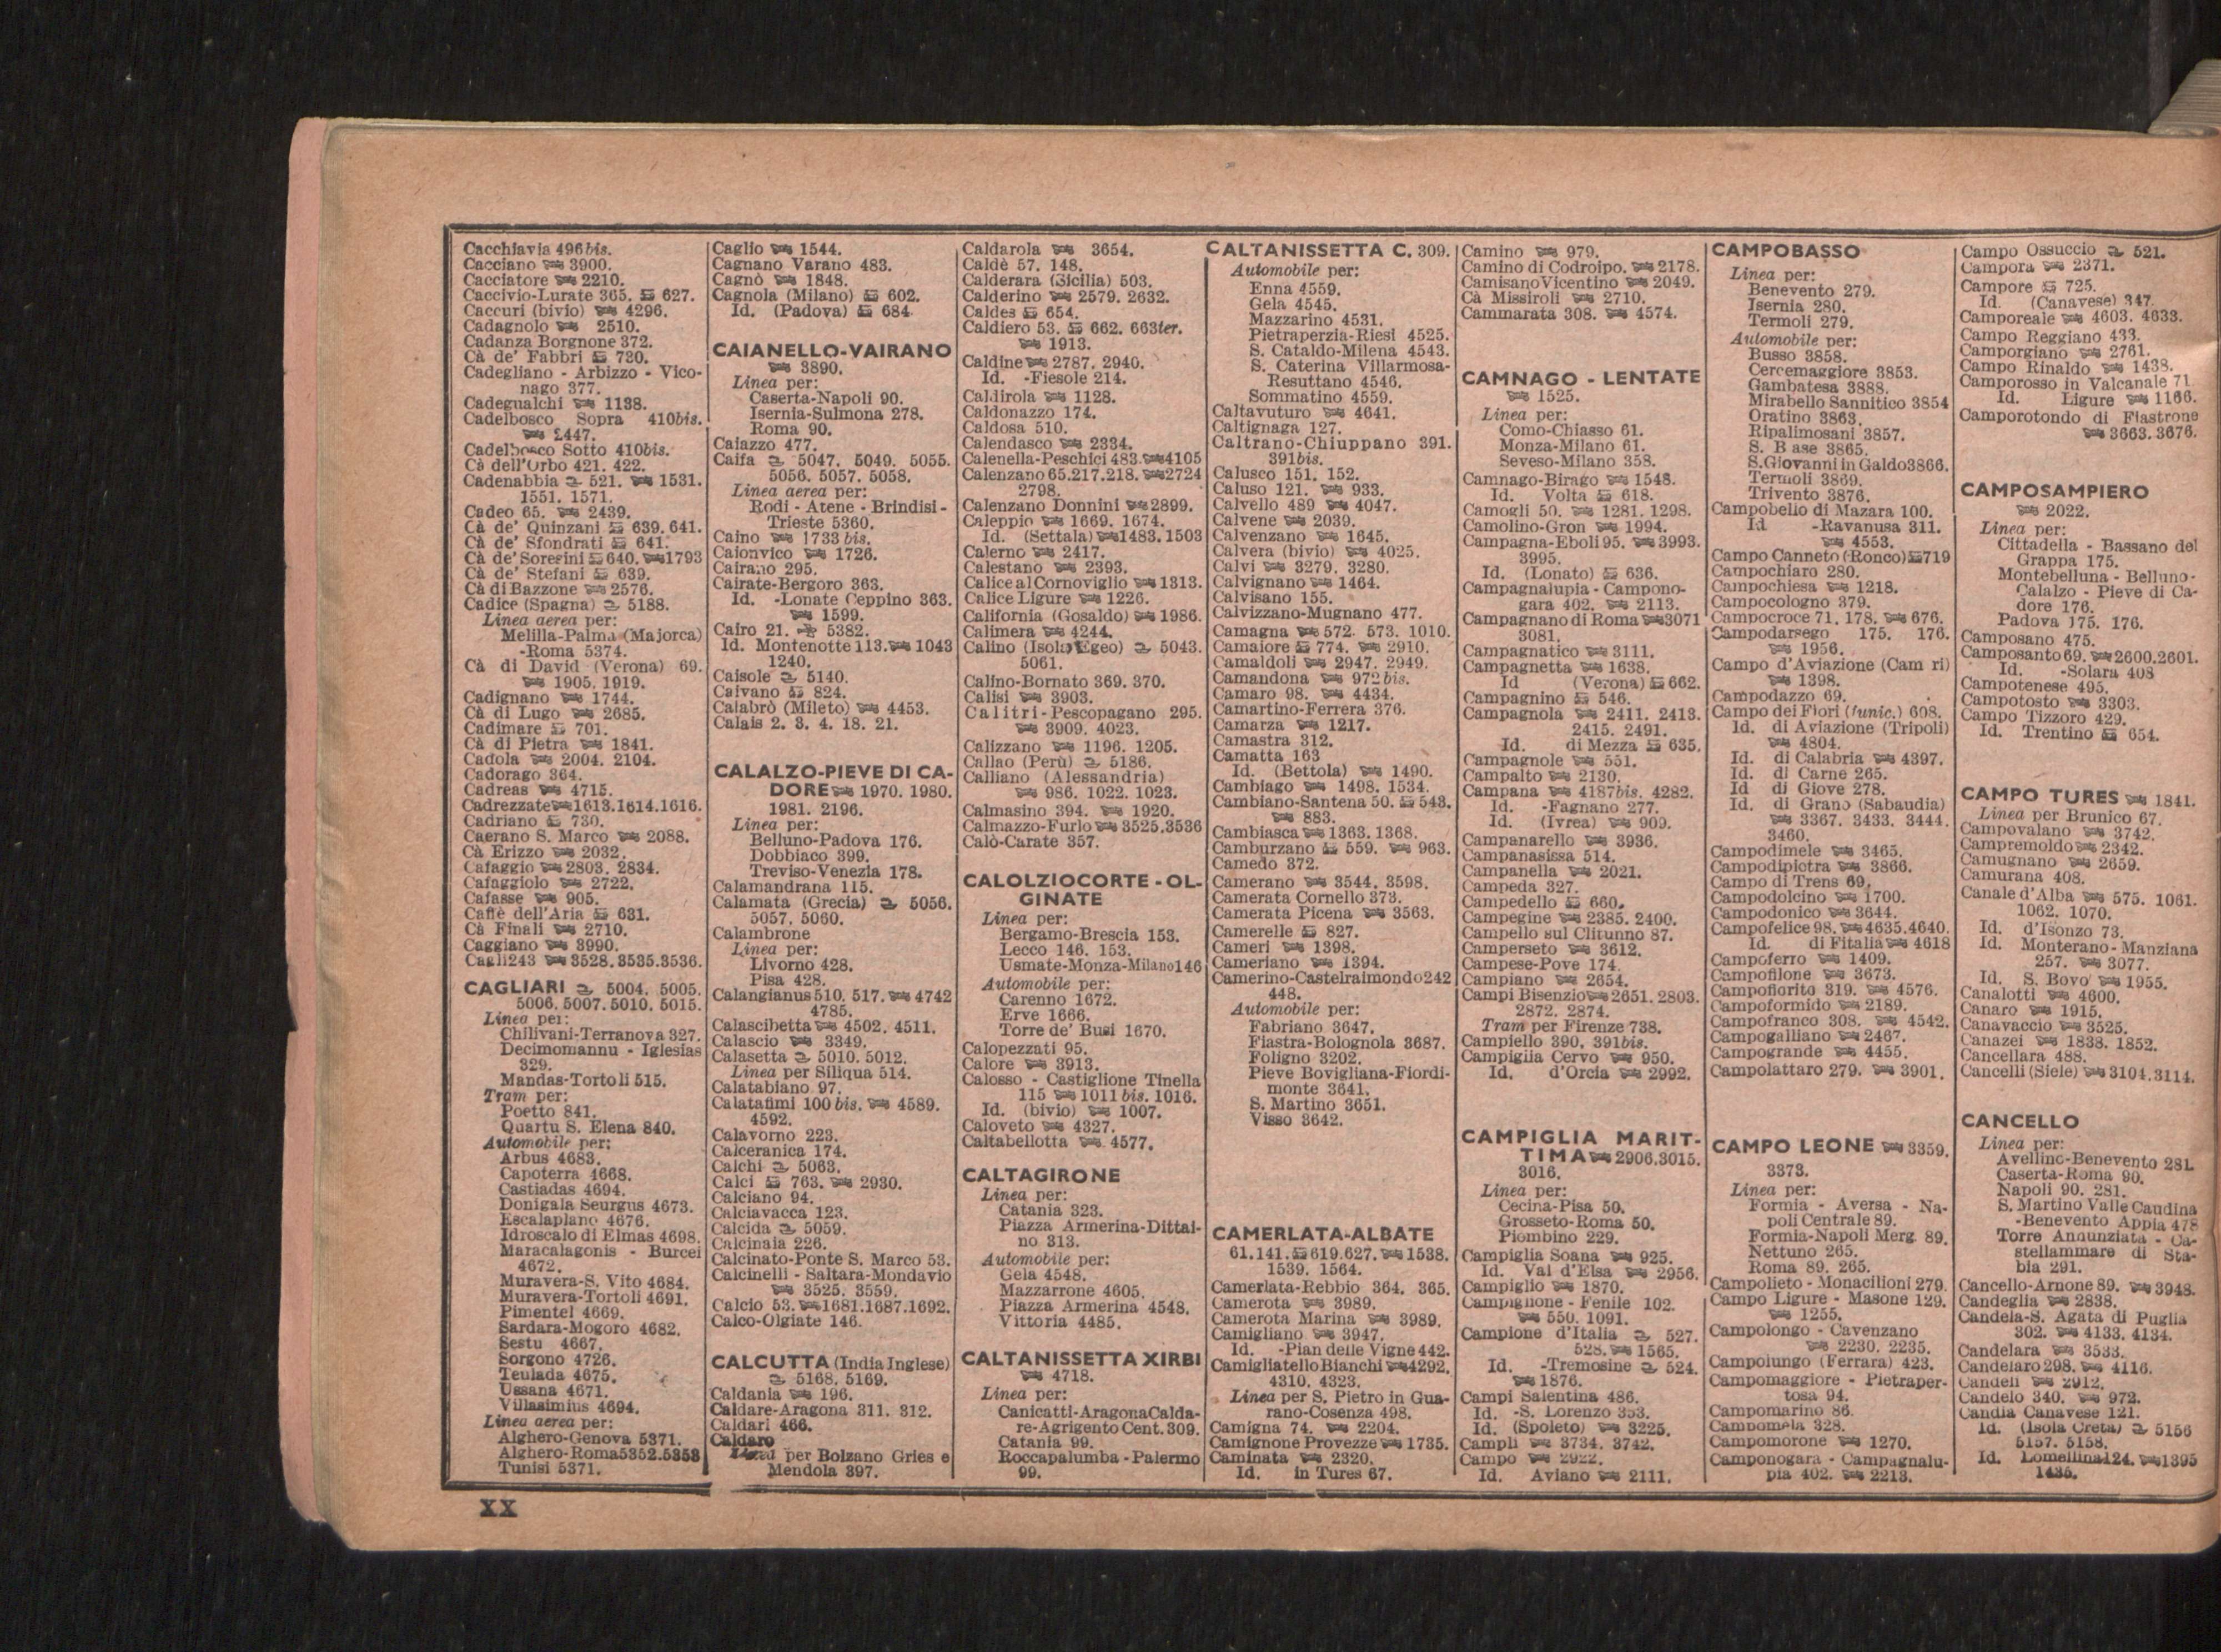 Cacchiavia 496bis.
Cacciano 3900.
Cacciatore 2210.
Caccivio-Lurate 365. 627.
Caccuri (bivio) 4296.
Cadagnolo 2510.
Cadanza Borgnone 372.
Cà de' Fabbri 730.
Cadegliano - Arbizzo - Vico-
nago 377.
Cadegualchi 1138.
Cadelbosco Sopra 410bis.
2447.
Cadelbosco Sotto 410bis.
Cà dell'Orbo 421. 422.
Cadenabbia 521. 1531.
1551. 1571.
Cadeo 65. 2439.
Cà de' Quinzani 639. 641.
Cà de' Sfondrati 641.
Cà de' Soresini 640. 1793
Cà de' Stefani 639.
Cà di Bazzone 2576.
Cadice (Spagna) 5188.
Linea aerea per:
Melilla-Palma (Majorca)
-Roma 5374.
Cà di David (Verona) 69.
1905. 1919.
Cadignano 1744.
Cà di Lugo 2685.
Cadimare 701.
Cà di Pietra 1841.
Cadola 2004. 2104.
Cadorago 364.
Cadreas 4715.
Cadrezzate 1613.1614.1616.
Cadriano 730.
Caerano S. Marco 2088.
Cà Erizzo 2032.
Cafaggio 2803. 2834.
Cafaggiolo 2722.
Cafasse 905.
Caffè dell'Aria 631.
Cà Finali 2710.
Caggiano 3990.
Cagli 243 3528.3535.3536.
CAGLIARI 5004. 5005.
5006. 5007. 5010. 5015.
Linea per:
Chilivani-Terranova 327.
Decimomannu - Iglesias
329.
Mandas-Tortoli 515.
Tram per:
Poetto 841.
Quartu S. Elena 840.
Automobile per:
Arbus 4683.
Capoterra 4668.
Castiadas 4694.
Donigala Seurgus 4673.
Escalaplano 4676.
Idroscalo di Elmas 4698.
Maracalagonis - Burcei
4672.
Muravera-S. Vito 4684.
Muravera-Tortolì 4691.
Pimentel 4669.
Sardara-Mogoro 4682.
Sestu 4667.
Sorgono 4726.
Teulada 4675.
Ussana 4671.
Villasimius 4694.
Linea aerea per:
Alghero-Genova 5371.
Alghero-Roma 5352.5353
Tunisi 5371.
Caglio 1544.
Cagnano Varano 483.
Cagnò 1848.
Cagnola (Milano) 602.
Id. (Padova) 684
CAIANELLO-VAIRANO
3890.
Linea per:
Caserta-Napoli 90.
Isernia-Sulmona 278.
Roma 90.
Caiazzo 477.
Caifa 5047. 5049. 5055.
5056. 5057. 5058.
Linea aerea per:
Rodi - Atene - Brindisi -
Trieste 5360.
Caino 1733 bis.
Caionvico 1726.
Cairano 295.
Cairate-Bergoro 363.
Id. -Lonate Ceppino 363.
1599.
Cairo 21. 5382.
Id. Montenotte 113. 1043
1240.
Caisole 5140.
Caivano 824.
Calabrò (Mileto) 4453.
Calais 2. 3. 4. 18. 21.
CALALZO-PIEVE DI CA-
DORE 1970. 1980.
1981. 2196.
Linea per:
Belluno-Padova 176.
Dobbiaco 399.
Treviso-Venezia 178.
Calamandrana 115.
Calamata (Grecia) 5056.
5057. 5060.
Calambrone
Linea per:
Livorno 428.
Pisa 428.
Calangianus 510. 517. 4742
4785.
Calascibetta 4502. 4511.
Calascio 3349.
Calasetta 5010. 5012.
Linea per Siliqua 514.
Calatabiano 97.
Calatafimi 100 bis. 4589.
4592.
Calavorno 223.
Calceranica 174.
Calchi 5063.
Calci 763. 2930.
Calciano 94.
Calciavacca 123.
Calcida 5059.
Calcinaia 226.
Calcinato-Ponte S. Marco 53.
Calcinelli - Saltara-Mondavio
3525. 3559.
Calcio 53. 1681.1687.1692.
Calco-Olgiate 146.
CALCUTTA (India Inglese)
5168. 5169.
Caldania 196.
Caldare-Aragona 311. 312.
Caldari 466.
Caldaro
Linea per Bolzano Gries e
Mendola 397.
Caldarola 3654.
Caldè 57. 148.
Calderara (Sicilia) 503.
Calderino 2579. 2632.
Caldes 654.
Caldiero 53. 662. 663ter.
1913.
Caldine 2787. 2940.
Id. -Fiesole 214.
Caldirola 1128.
Caldonazzo 174.
Caldosa 510.
Calendasco 2334.
Calenella-Peschici 483. 4105
Calenzano 65.217.218. 2724
2798.
Calenzano Donnini 2899.
Caleppio 1669. 1674.
Id. (Settala) 1483. 1503
Calerno 2417.
Calestano 2393.
Calice al Cornoviglio 1313.
Calice Ligure 1226.
California (Gosaldo) 1986.
Calimera 4244.
Calino (Isola Egeo) 5043.
5061.
Calino-Bornato 369. 370.
Calisi 3903.
Calitri-Pescopagano 295.
3909. 4023.
Calizzano 1196. 1205.
Callao (Perù) 5186.
Calliano (Alessandria)
986. 1022. 1023.
Calmasino 394. 1920.
Calmazzo-Furlo 3525.3536
Calò-Carate 357.
CALOLZIOCORTE - OL-
GINATE
Linea per:
Bergamo-Brescia 153.
Lecco 146. 153.
Usmate-Monza-Milano 146
Automobile per:
Carenno 1672.
Erve 1666.
Torre de' Busi 1670.
Calopezzati 95.
Calore 3913.
Calosso - Castiglione Tinella
115 1011 bis. 1016.
Id. (bivio) 1007.
Caloveto 4327.
Caltabellotta 4577.
CALTAGIRONE
Linea per:
Catania 323.
Piazza Armerina-Dittai-
no 313.
Automobile per:
Gela 4548.
Mazzarrone 4605.
Piazza Armerina 4548.
Vittoria 4485.
CALTANISSETTA XIRBI
4718.
Linea per:
Canicattì-Aragona Calda-
re-Agrigento Cent. 309.
Catania 99.
Roccapalumba - Palermo
99.
CALTANISSETTA C. 309.
Automobile per:
Enna 4559.
Gela 4545.
Mazzarino 4531.
Pietraperzia-Riesi 4525.
S. Cataldo-Milena 4543.
S. Caterina Villarmosa-
Resuttano 4546.
Sommatino 4559.
Caltavuturo 4641.
Caltignaga 127.
Caltrano-Chiuppano 391.
391bis.
Calusco 151. 152.
Caluso 121. 933.
Calvello 489 4047.
Calvene 2039.
Calvenzano 1645.
Calvera (bivio) 4025.
Calvi 3279. 3280.
Calvignano 1464.
Calvisano 155.
Calvizzano-Mugnano 477.
Camagna 572. 573. 1010.
Camaiore 774. 2910.
Camaldoli 2947. 2949.
Camandona 972bis.
Camaro 98. 4434.
Camartino-Ferrera 376.
Camarza 1217.
Camastra 312.
Camatta 163
Id. (Bettola) 1490.
Cambiago 1498. 1534.
Cambiano-Santena 50. 543.
883.
Cambiasca 1363. 1368.
Camburzano 559. 963.
Camedo 372.
Camerano 3544. 3598.
Camerata Cornello 373.
Camerata Picena 3563.
Camerelle 827.
Cameri 1398.
Cameriano 1394.
Camerino-Castelraimondo 242
448.
Automobile per:
Fabriano 3647.
Fiastra-Bolognola 3687.
Foligno 3202.
Pieve Bovigliana-Fiordi-
monte 3641.
S. Martino 3651.
Visso 3642.
CAMERLATA-ALBATE
61.141. 619.627. 1538.
1539. 1564.
Camerlata-Rebbio 364. 365.
Camerota 3989.
Camerota Marina 3989.
Camigliano 3947.
Id. -Pian delle Vigne 442.
Camigliatello Bianchi 4292.
4310. 4323.
Linea per S. Pietro in Gua-
rano-Cosenza 498.
Camigna 74. 2204.
Camignone Provezze 1735.
Caminata 2320.
Id. in Tures 67.
Camino 979.
Camino di Codroipo. 2178.
Camisano Vicentino 2049.
Cà Missiroli 2710.
Cammarata 308. 4574.
CAMNAGO - LENTATE
1525.
Linea per:
Como-Chiasso 61.
Monza-Milano 61.
Seveso-Milano 358.
Camnago-Birago 1548.
Id. Volta 618.
Camogli 50. 1281. 1298.
Camolino-Gron 1994.
Campagna-Eboli 95. 3993.
3995.
Id. (Lonato) 636.
Campagnalupia - Campono-
gara 402. 2113.
Campagnano di Roma 3071
3081.
Campagnatico 3111.
Campagnetta 1638.
Id (Verona) 662.
Campagnino 546.
Campagnola 2411. 2413.
2415. 2491.
Id. di Mezza 635.
Campagnole 551.
Campalto 2130.
Campana 4187bis. 4282.
Id. -Fagnano 277.
Id. (Ivrea) 909.
Campanarello 3936.
Campanasissa 514.
Campanella 2021.
Campeda 327.
Campedello 660.
Campegine 2385. 2400.
Campello sul Clitunno 87.
Camperseto 3612.
Campese-Pove 174.
Campiano 2654.
Campi Bisenzio 2651. 2803.
2872. 2874.
Tram per Firenze 738.
Campiello 390. 391bis.
Campiglia Cervo 950.
Id. d'Orcia 2992.
CAMPIGLIA MARIT-
TIMA 2906.3015.
3016.
Linea per:
Cecina-Pisa 50.
Grosseto-Roma 50.
Piombino 229.
Campiglia Soana 925.
Id. Val d'Elsa 2956.
Campiglio 1870.
Campiglione - Fenile 102.
550. 1091.
Campione d'Italia 527.
528. 1565.
Id. -Tremosine 524.
1876.
Campi Salentina 486.
Id. -S. Lorenzo 353.
Id. (Spoleto) 3225.
Campli 3734. 3742.
Campo 2922.
Id. Aviano 2111.
CAMPOBASSO
Linea per:
Benevento 279.
Isernia 280.
Termoli 279.
Automobile per:
Busso 3858.
Cercemaggiore 3853.
Gambatesa 3888.
Mirabello Sannitico 3854
Oratino 3863.
Ripalimosani 3857.
S. B ase 3865.
S. Giovanni in Galdo 3866.
Termoli 3869.
Trivento 3876.
Campobello di Mazara 100.
Id -Ravanusa 311.
4553.
Campo Canneto (Ronco) 719
Campochiaro 280.
Campochiesa 1218.
Campocologno 379.
Campocroce 71. 178. 676.
Campodarsego 175. 176.
1956.
Campo d'Aviazione (Cam ri)
1398.
Campodazzo 69.
Campo dei Fiori (func.) 608.
Id. di Aviazione (Tripoli)
4804.
Id. di Calabria 4397.
Id. di Carne 265.
Id di Giove 278.
Id. di Grano (Sabaudia)
3367. 3433. 3444.
3460.
Campodimele 3465.
Campodipietra 3866.
Campo di Trens 69.
Campodolcino 1700.
Campodonico 3644.
Campofelice 98. 4635.4640.
Id. di Fitalia 4618
Campoferro 1409.
Campofilone 3673.
Campofiorito 319. 4576.
Campoformido 2189.
Campofranco 308. 4542.
Campogalliano 2467.
Campogrande 4455.
Campolattaro 279. 3901.
CAMPO LEONE 3359.
3373.
Linea per:
Formia - Aversa - Na-
poli Centrale 89.
Formia-Napoli Merg. 89.
Nettuno 265.
Roma 89. 265.
Campolieto - Monacilioni 279.
Campo Ligure - Masone 129.
1255.
Campolongo - Cavenzano
2230. 2235.
Campolungo (Ferrara) 423.
Campomaggiore - Pietraper-
tosa 94.
Campomarino 86.
Campomela 328.
Campomorone 1270.
Camponogara - Campagnalu-
pia 402. 2213.
Campo Ossuccio 521.
Campora 2371.
Campore 725.
Id. (Canavese) 347.
Camporeale 4603. 4633.
Campo Reggiano 433.
Camporgiano 2761.
Campo Rinaldo 1438.
Camporosso in Valcanale 71
Id. Ligure 1166.
Camporotondo di Fiastrone
3663. 3676.
CAMPOSAMPIERO
2022.
Linea per:
Cittadella - Bassano del
Grappa 175.
Montebelluna - Belluno-
Calalzo - Pieve di Ca-
dore 176.
Padova 175. 176.
Camposano 475.
Camposanto 69. 2600.2601.
Id. -Solara 408
Campotenese 495.
Campotosto 3303.
Campo Tizzoro 429.
Id. Trentino 654.
CAMPO TURES 1841.
Linea per Brunico 67.
Campovalano 3742.
Campremoldo 2342.
Camugnano 2659.
Camurana 408.
Canale d'Alba 575. 1061.
1062. 1070.
Id. d'Isonzo 73.
Id. Monterano - Manziana
257. 3077.
Id. S. Bovo 1955.
Canalotti 4600.
Canaro 1915.
Canavaccio 3525.
Canazei 1838. 1852.
Cancellara 488.
Cancelli (Siele) 3104.3114.
CANCELLO
Linea per:
Avellino-Benevento 281.
Caserta-Roma 90.
Napoli 90. 281.
S. Martino Valle Caudina
-Benevento Appia 478
Torre Annunziata - Ca-
stellammare di Sta-
bia 291.
Cancello-Arnone 89. 3948.
Candeglia 2838.
Candela-S. Agata di Puglia
302. 4133. 4134.
Candelara 3533.
Candelaro 298. 4116.
Candeli 2912.
Candelo 340. 972.
Candia Canavese 121.
Id. (Isola Creta) 5156
5157. 5158.
Id. Lomellina 124. 1395
1435.
XX